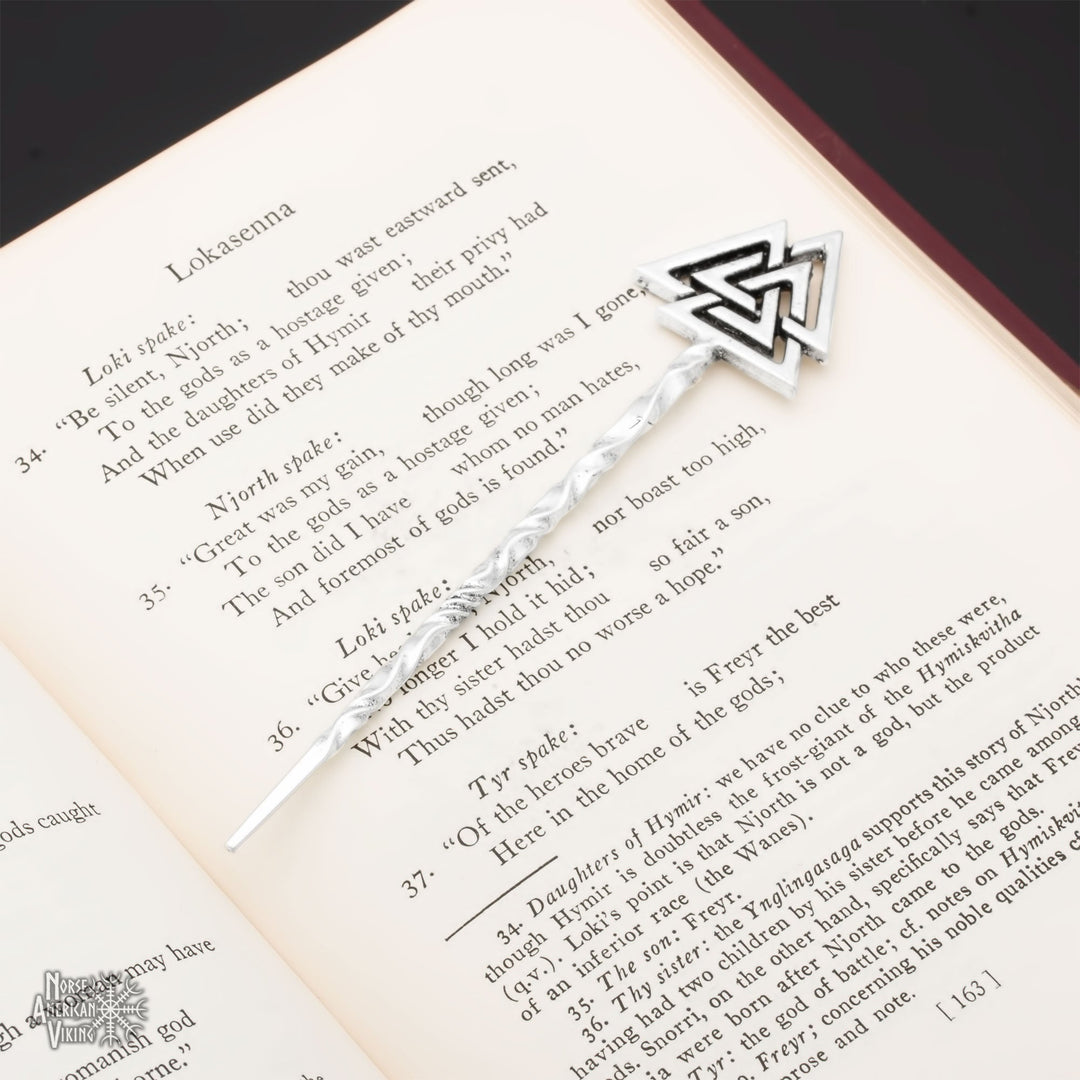 ods caught
may have
omanish god
orne."
Lokasenna
Loki spake:
34. "Be silent, Njorth; thou wast eastward sent,
To the gods as a hostage given;
And the daughters of Hymir their privy had
When use did they make of thy mouth."
Njorth spake:
35. "Great was my gain, though long was I gone,
To the gods as a hostage given;
The son did I have whom no man hates,
And foremost of gods is found."
Loki spake:
36. "Give Njorth, nor boast too high,
longer I hold it hid;
With thy sister hadst thou so fair a son,
Thus hadst thou no worse a hope."
Tyr spake:
37. "Of the heroes brave is Freyr the best
Here in the home of the gods;
34. Daughters of Hymir: we have no clue to who these were,
though Hymir is doubtless the frost-giant of the Hymiskvitha
(q.v.). Loki's point is that Njorth is not a god, but the product
of an inferior race (the Wanes).
35. The son: Freyr.
36. Thy sister: the Ynglingasaga supports this story of Njorth
having had two children by his sister before he came among
ods. Snorri, on the other hand, specifically says that Frey
were born after Njorth came to the gods.
Tyr: the god of battle; cf. notes on Hymiskvi
Freyr; concerning his noble qualities cf
prose and note.
[ 163 ]
NORSE
AMERICAN
VIKING